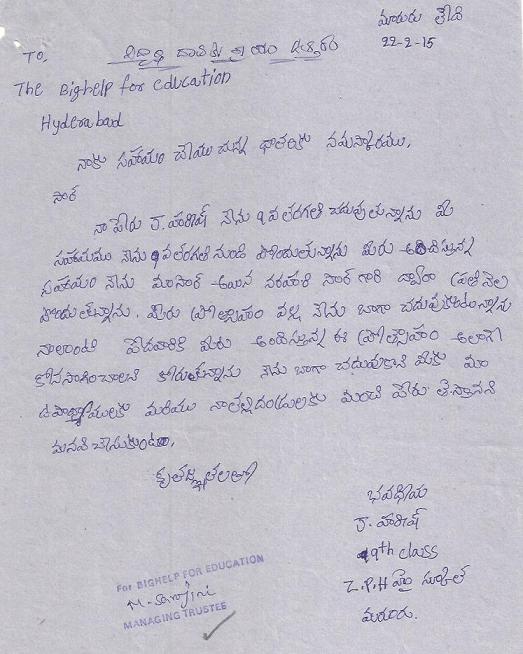 మారురు తేది
22-2-15
To,
విద్యార్థి దాతకు వ్రాయు ఉత్తరం
The Bighelp for education
Hyderabad
నాకు సహాయం చేయు చున్న దాతకు నమస్కారము,
సార్
నా పేరు J. హరీష్ నేను 9వ తరగతి చదువుతున్నాను మీ
సహాయము నేను 9వ తరగతి నుండి పొందుతున్నాను మీరు అందిస్తున్న
సహాయం నేను మా సార్ అయిన నరహరి సార్ గారి ద్వారా ప్రతి నెల
పొందుతున్నాను. మీరు ప్రోత్సాహం వల్ల నేను బాగా చదువుకుంటున్నాను
నాలాంటి పేదవారికి మీరు అందిస్తున్న ఈ ప్రోత్సాహం అలాగే
కొనసాగించాలని కోరుతున్నాను నేను బాగా చదువుకొని మీకు మా
ఉపాధ్యాయులకు మరియు నా తల్లిదండ్రులకు మంచి పేరు తెస్తానని
మనవి చేసుకుంటూ,
కృతజ్ఞతలతో
భవదీయ
J. హరీష్
9th class
Z.P.H హై స్కూల్
మారురు.
For BIGHELP FOR EDUCATION
M. Sarojini
MANAGING TRUSTEE